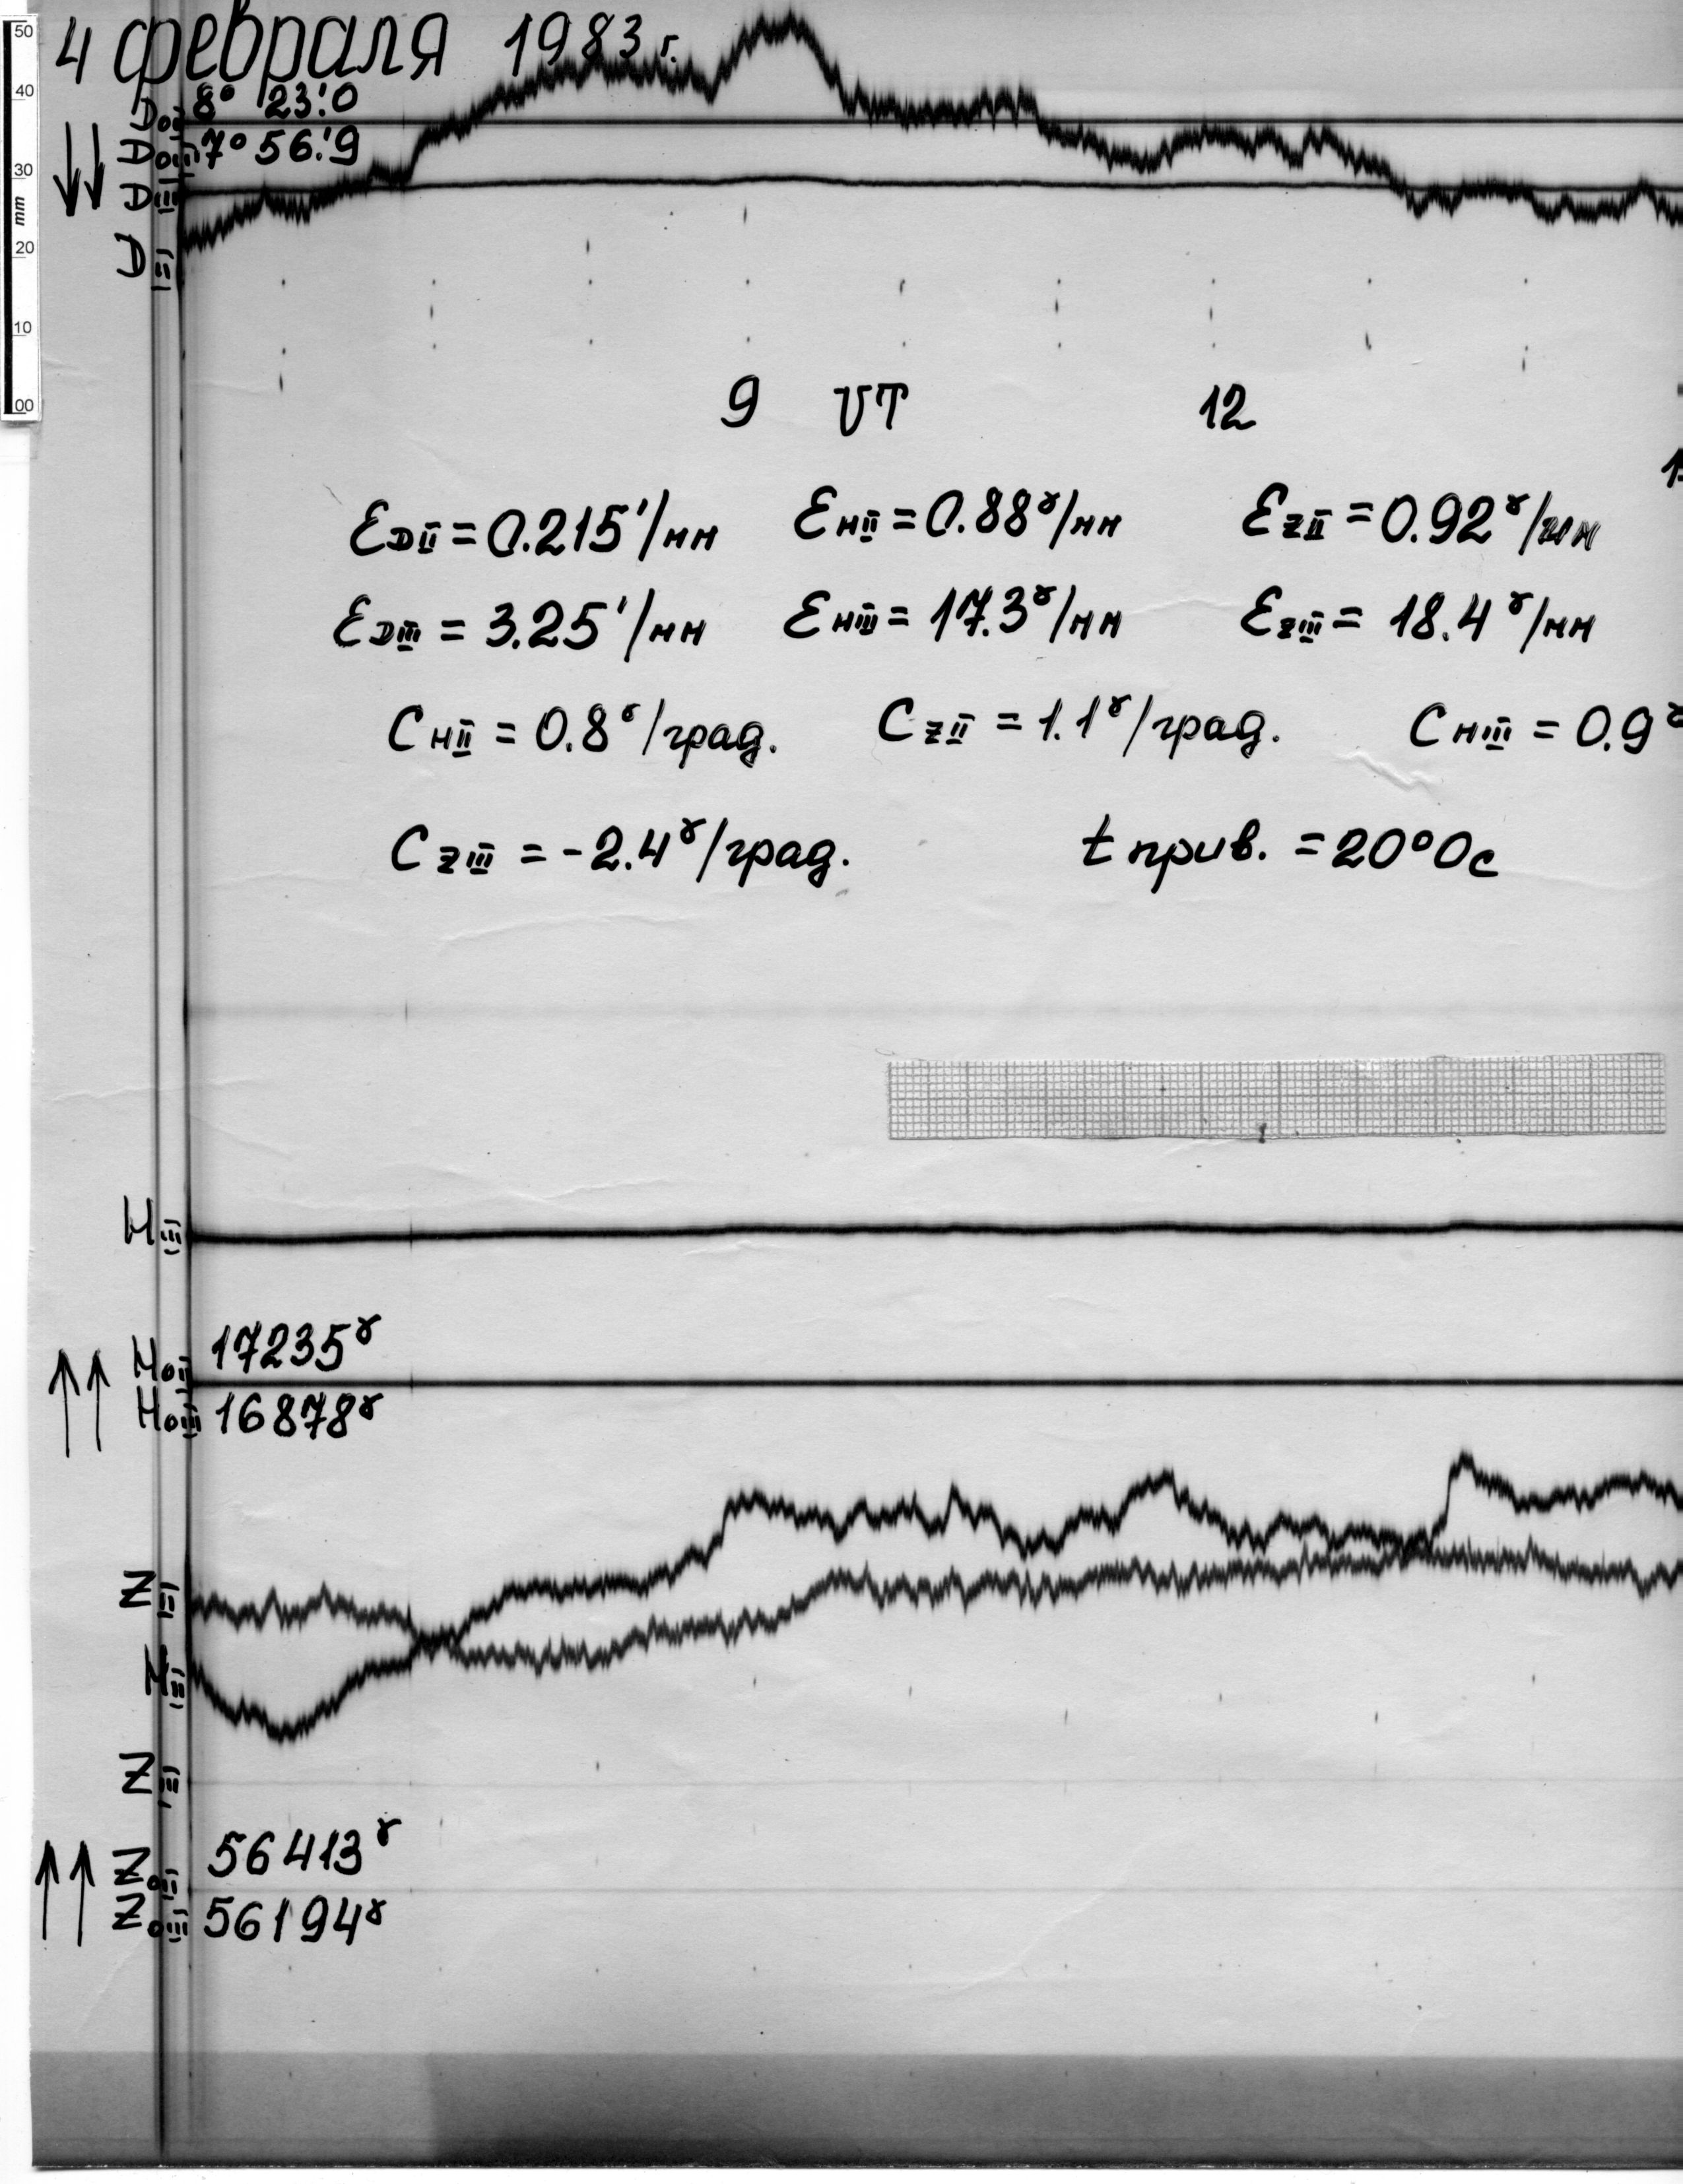 4 февраля 1983 г.
50
40
30
mm
20
10
00
D₀II 8° 23.'0
D₀III 7° 56.'9
DIII
DII
9 UT 12
εDII = 0.215'/мм εHII = 0.88ᵞ/мм εZII = 0.92ᵞ/мм
εDIII = 3.25'/мм εHIII = 17.3ᵞ/мм εZIII = 18.4ᵞ/мм
CHII = 0.8ᵞ/град. CZII = 1.1ᵞ/град. CHIII = 0.9ᵞ
CZIII = -2.4ᵞ/град. t прив. = 20°0c
HIII
H₀II 17235ᵞ
H₀III 16878ᵞ
ZII
HII
ZIII
Z₀II 56413ᵞ
Z₀III 56194ᵞ